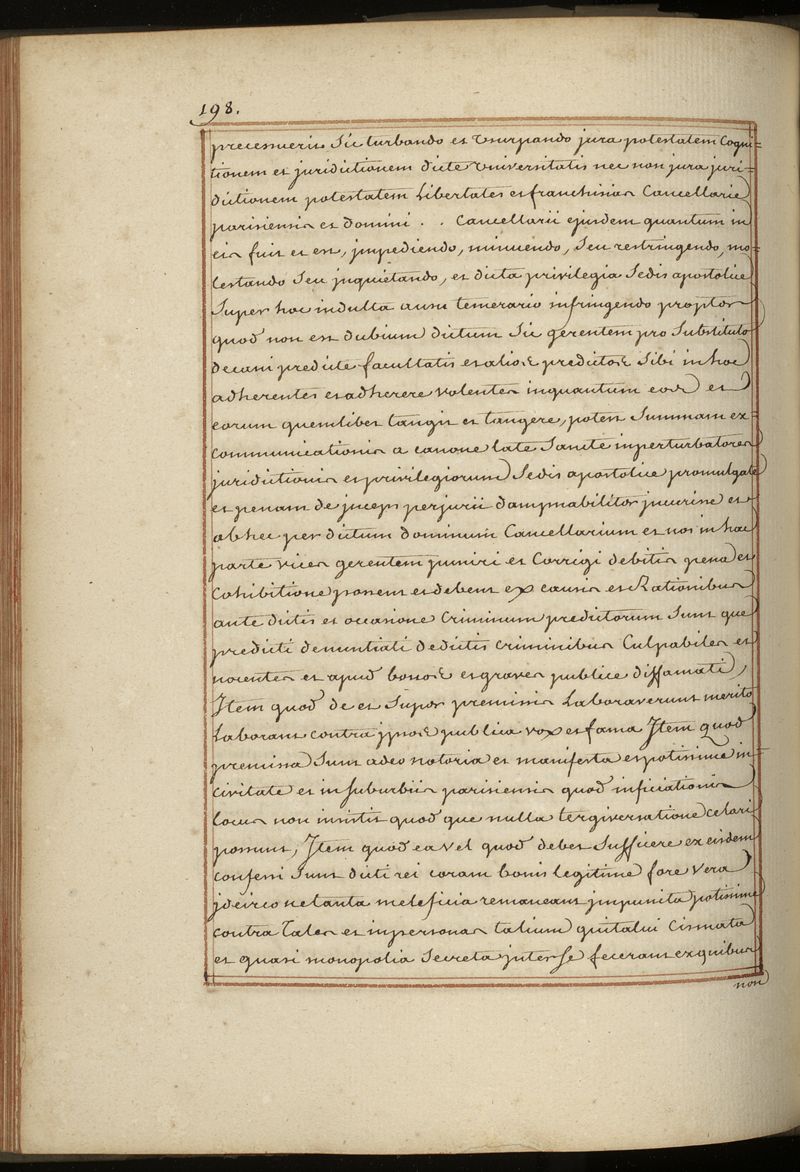 198.
precessuerit Sic turbando et Vsurpando jura potestatem Cogni=
tionem et juridictionem dicte Vniversitatis nec non jura juri=
dictionem potestatem Libertates et franchisias Cancellarie
parisiensis et domini . . Cancellarii ejusdem quantum in
eis fuit et est, jmpediendo, minuendo, Seu restringendo, mo=
lestando Seu jnquietando, et dicta privilegia Sedis apostolice
Super hoc indulta ausu temerario infringendo propter
quod non est dubium dictum Sic gerentem pro Substituto
decani predicte facultatis et alios predictos Sibi in hoc
adherentes et adherere volentes inquantum eos et
eorum quemlibet tangit et tangere, potest Summam ex=
communicationis a canone late Sancte inperturbatores
juridictionis et privilegiorum Sedis apostolice promulgate
et penam de jnceps perjurii dampnabiliter jncurisse et
ab hec per dictum dominum Cancellarium et nos in hac
parte vices gerentem puniri et Corrigi debitis pena et
Cohibitione possent et debent ex causis et Rationibus
ante dictis et occasione Criminum predictorum Sunt que
predicti denuntiati dedictis criminibus Culpabiles et
nocentes et apud bonos et graves publice diffamati,
Jtem quod de et Super premissis Laboraverunt merito
Laborant contra jpsos publica vox et fama Jtem quod
premissa Sunt adeo notoria et manifesta et potissime in
civitate et in suburbiis parisiensis quod inficiationis
locus non insistit quod que nulla tergiversatione celari
possunt, Jtem quod ea vel quod debet Sufficere ex eisdem
confessi Sunt dicti rei coram bonis legitime fore vera
jdcirco ne tanta maleficia remaneant jmpunita potissime
contra Tales et inpersonas talium qui talui Cismata
et quasi monopolia Secreta jnter se fecerant ex quibus
non